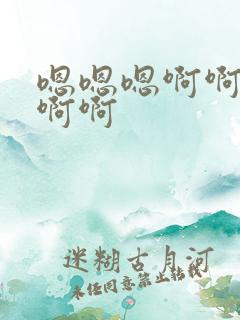 嗯嗯嗯啊啊
啊啊
迷糊古月河
未经同意禁止转载